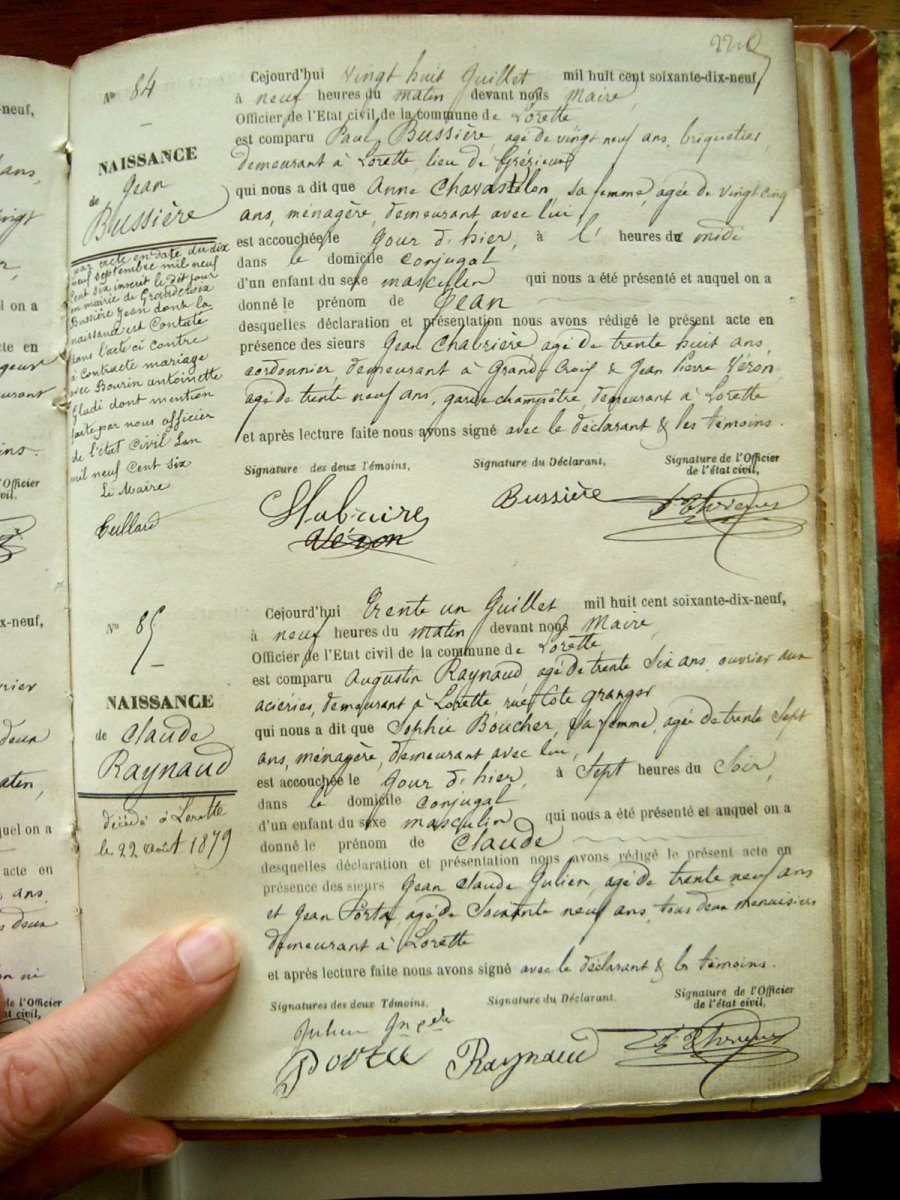 Nº 84
NAISSANCE
de Jean
Bussière
par acte en date du dix
neuf septembre mil neuf
cent six inscrit le dit jour
en mairie de Grandcroix
Bussière Jean dont la
naissance est Contatée
dans l'acte ci contre
a contracté mariage
avec Bourin antoinette
Gladi dont mention
faite par nous officier
de l'état civil l'an
mil neuf cent six
Le Maire
Cejourd'hui vingt huit Juillet mil huit cent soixante-dix-neuf,
à neuf heures du matin devant nous Maire,
Officier de l'Etat civil de la commune de Lorette
est comparu Paul Bussière, agé de vingt neuf ans, briquetier,
demeurant à Lorette, lieu de Grézieux
qui nous a dit que Anne Chavastelon, sa femme, agée de vingt cinq
ans, ménagère, demeurant avec lui,
est accouchée le Jour d'hier, à heures du midi
dans le domicile conjugal
d'un enfant du sexe masculin qui nous a été présenté et auquel on a
donné le prénom de Jean
desquelles déclaration et présentation nous avons rédigé le présent acte en
présence des sieurs Jean Chabrière agé de trente huit ans
cordonnier, demeurant à Grand Croix & Jean Pierre Véron
agé de trente neuf ans, garde champêtre demeurant à Lorette
et après lecture faite nous ayons signé avec le déclarant & les témoins.
Signature des deux Témoins, Signature du Déclarant, Signature de l'Officier
de l'état civil,
Bussière
Véron
Nº 85
NAISSANCE
de Claude
Raynaud
décédé à Lorette
le 22 août 1879
Cejourd'hui Trente un Juillet mil huit cent soixante-dix-neuf,
à neuf heures du matin devant nous Maire,
Officier de l'Etat civil de la commune de Lorette
est comparu Augustin Raynaud, agé de trente Six ans, ouvrier aux
aciéries, demeurant à Lorette, rue Côte granger
qui nous a dit que Sophie Boucher, sa femme, agée de trente Sept
ans, ménagère, demeurant avec lui,
est accouchée le Jour d'hier, à Sept heures du Soir,
dans le domicile conjugal
d'un enfant du sexe masculin qui nous a été présenté et auquel on a
donné le prénom de Claude
desquelles déclaration et présentation nous avons rédigé le présent acte en
présence des sieurs Jean Claude Julien, agé de trente neuf ans
et Jean Porta, agé de Soixante neuf ans, tous deux menuisiers
demeurant à Lorette
et après lecture faite nous avons signé avec le déclarant & les témoins.
Signatures des deux Témoins. Signature du Déclarant. Signature de l'Officier
de l'état civil,
Julien
Raynaud